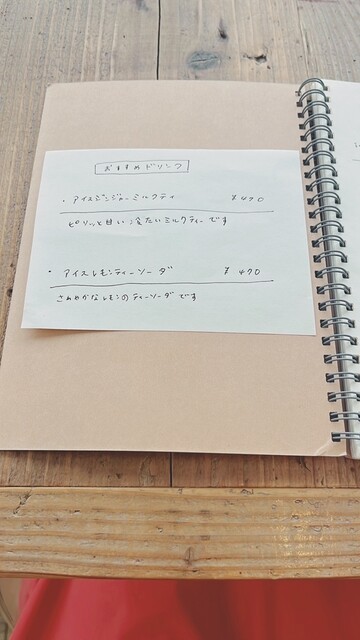 おすすめドリンク
・アイスジンジャーミルクティ ¥490
ピリッと甘い冷たいミルクティーです
・アイスレモンティーソーダ ¥470
さわやかなレモンのティーソーダです